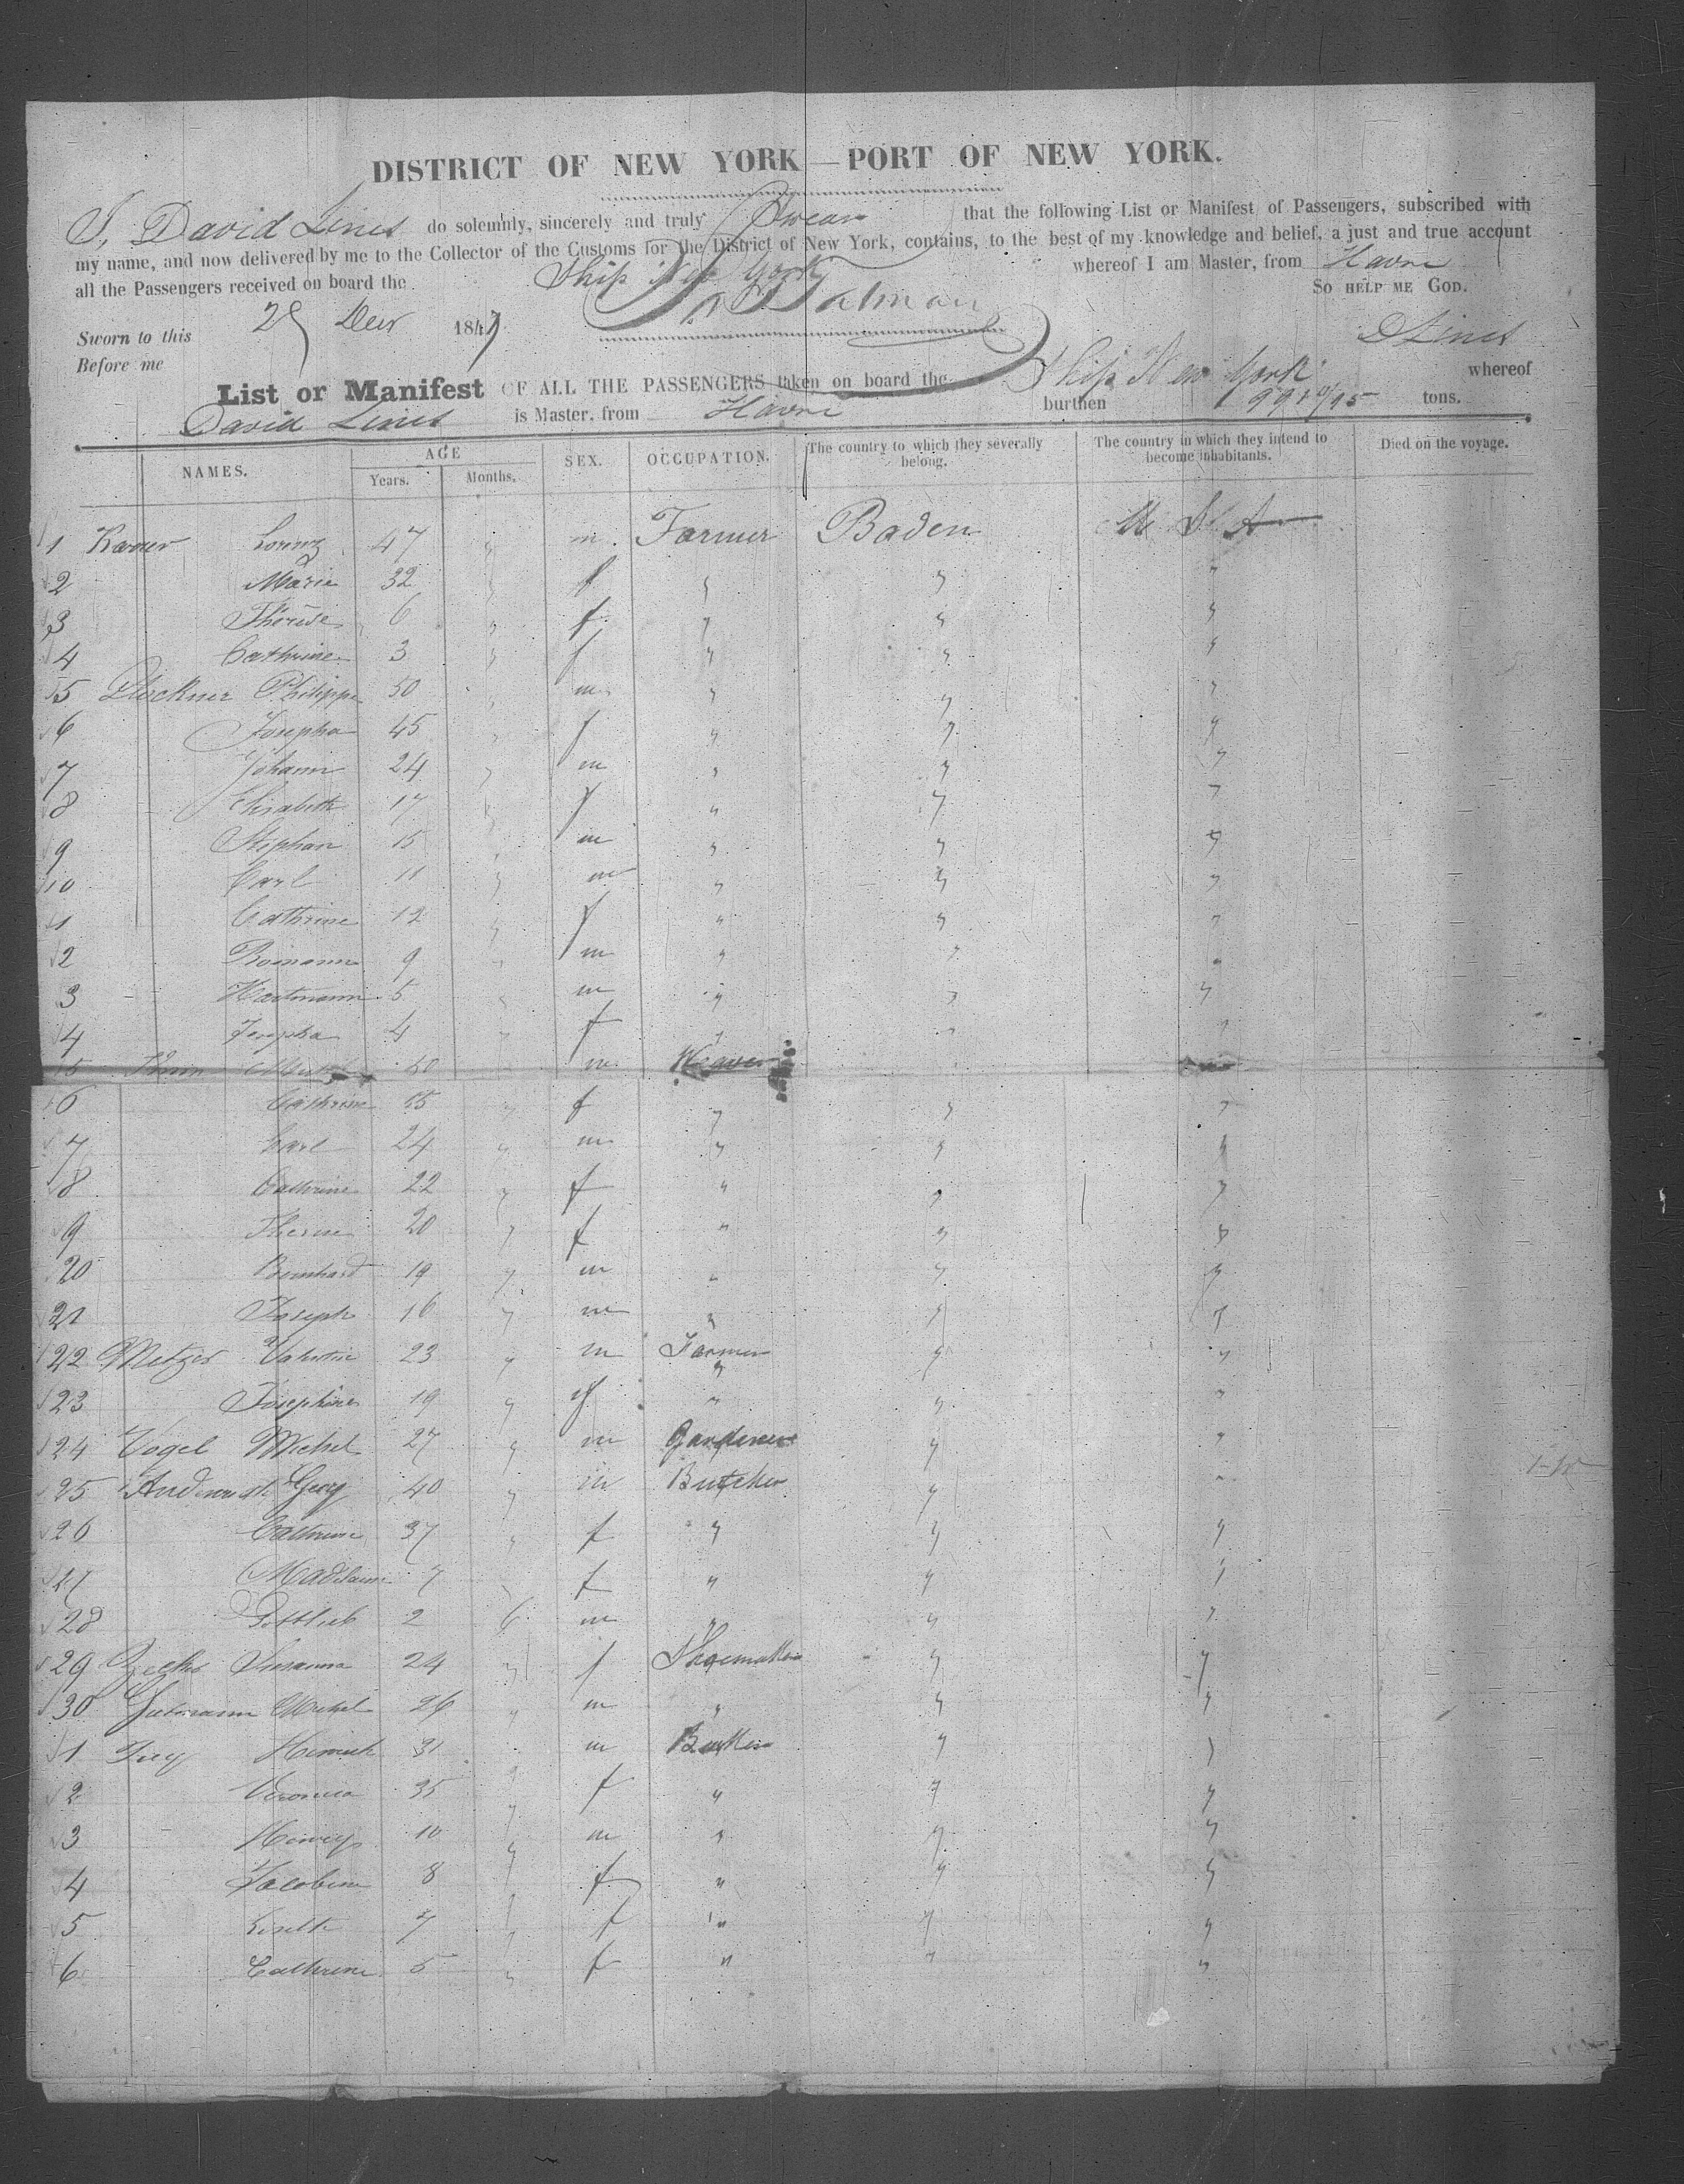 DISTRICT OF NEW YORK — PORT OF NEW YORK.
I, David Lines do solemnly, sincerely and truly Swear that the following List or Manifest of Passengers, subscribed with
my name, and now delivered by me to the Collector of the Customs for the District of New York, contains, to the best of my knowledge and belief, a just and true account
all the Passengers received on board the Ship New York whereof I am Master, from Havre
SO HELP ME GOD.
Sworn to this 29 Decr 1847
D Lines
Before me
List or Manifest OF ALL THE PASSENGERS taken on board the Ship New York whereof
David Lines is Master, from Havre burthen 991 /95 tons.
NAMES. AGE Years. Months. SEX. OCCUPATION. The country to which they severally belong. The country in which they intend to become inhabitants. Died on the voyage.
1 Lorenz 47 " m. Farmer Baden U. S. A
2 Marie 32 " f " " "
3 Therese 6 " f " " "
4 Cathrine 3 " f " " "
5 Philippe 50 " m " " "
6 Josepha 45 " f " " "
7 Johann 24 " m " " "
8 Elisabeth 17 " f " " "
9 Stephan 15 " m " " "
10 Carl 11 " m " " "
1 Cathrine 12 " f " " "
2 Romann 9 " m " " "
3 Hartmann 5 " m " " "
4 Josepha 4 " f " " "
5 50 m Weaver
6 Cathrine 55 " f " " "
7 Carl 24 " m " " "
8 Cathrine 22 " f " " "
9 Therese 20 " f " " "
20 Bernhard 19 " m " " "
21 Joseph 16 " m " " "
22 Metzger 23 " m Farmer " "
23 Josephine 19 " f " " "
24 Vogel Michel 27 " m Gardener " "
25 Georg 40 " m Butcher " "
26 Cathrine 37 " f " " "
27 7 " f " " "
28 Gottlieb 2 6 m " " "
29 Susanna 24 " f Shoemaker " "
30 Gutmann Michel 26 " m " " "
1 Frey Heinrich 31 " m " "
2 Veronica 35 " f " " "
3 Henry 10 " m " " "
4 Jacobine 8 " f " " "
5 Lisette 7 " f " " "
6 Cathrine 5 " f " " "